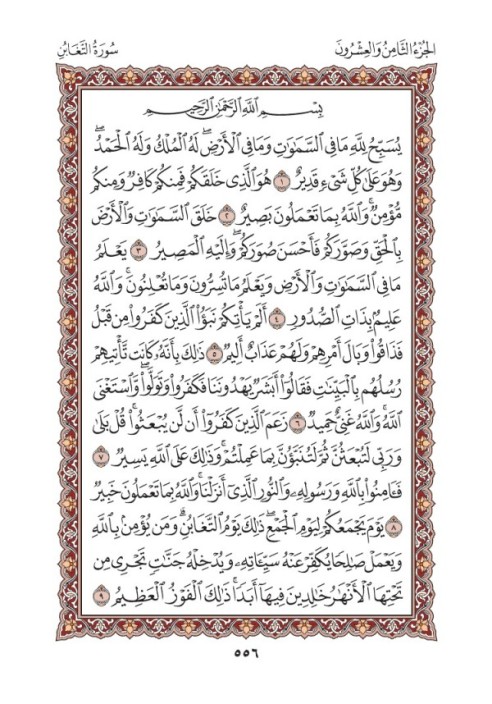 الجزء الثامن والعشرون
سورة التغابن
بِسْمِ ٱللَّهِ ٱلرَّحْمَٰنِ ٱلرَّحِيمِ
يُسَبِّحُ لِلَّهِ مَا فِي ٱلسَّمَٰوَٰتِ وَمَا فِي ٱلْأَرْضِۖ لَهُ ٱلْمُلْكُ وَلَهُ ٱلْحَمْدُۖ
وَهُوَ عَلَىٰ كُلِّ شَيْءٍ قَدِيرٌ ١ هُوَ ٱلَّذِي خَلَقَكُمْ فَمِنكُمْ كَافِرٌ وَمِنكُم
مُّؤْمِنٌۚ وَٱللَّهُ بِمَا تَعْمَلُونَ بَصِيرٌ ٢ خَلَقَ ٱلسَّمَٰوَٰتِ وَٱلْأَرْضَ
بِٱلْحَقِّ وَصَوَّرَكُمْ فَأَحْسَنَ صُوَرَكُمْۖ وَإِلَيْهِ ٱلْمَصِيرُ ٣ يَعْلَمُ
مَا فِي ٱلسَّمَٰوَٰتِ وَٱلْأَرْضِ وَيَعْلَمُ مَا تُسِرُّونَ وَمَا تُعْلِنُونَۚ وَٱللَّهُ
عَلِيمُۢ بِذَاتِ ٱلصُّدُورِ ٤ أَلَمْ يَأْتِكُمْ نَبَؤُا۟ ٱلَّذِينَ كَفَرُوا۟ مِن قَبْلُ
فَذَاقُوا۟ وَبَالَ أَمْرِهِمْ وَلَهُمْ عَذَابٌ أَلِيمٌ ٥ ذَٰلِكَ بِأَنَّهُۥ كَانَت تَّأْتِيهِمْ
رُسُلُهُم بِٱلْبَيِّنَٰتِ فَقَالُوٓا۟ أَبَشَرٌ يَهْدُونَنَا فَكَفَرُوا۟ وَتَوَلَّوا۟ۚ وَّٱسْتَغْنَى
ٱللَّهُۚ وَٱللَّهُ غَنِيٌّ حَمِيدٌ ٦ زَعَمَ ٱلَّذِينَ كَفَرُوٓا۟ أَن لَّن يُبْعَثُوا۟ۚ قُلْ بَلَىٰ
وَرَبِّي لَتُبْعَثُنَّ ثُمَّ لَتُنَبَّؤُنَّ بِمَا عَمِلْتُمْۚ وَذَٰلِكَ عَلَى ٱللَّهِ يَسِيرٌ ٧
فَـَٔامِنُوا۟ بِٱللَّهِ وَرَسُولِهِۦ وَٱلنُّورِ ٱلَّذِيٓ أَنزَلْنَاۚ وَٱللَّهُ بِمَا تَعْمَلُونَ خَبِيرٌ
٨ يَوْمَ يَجْمَعُكُمْ لِيَوْمِ ٱلْجَمْعِۖ ذَٰلِكَ يَوْمُ ٱلتَّغَابُنِۗ وَمَن يُؤْمِنۢ بِٱللَّهِ
وَيَعْمَلْ صَٰلِحًا يُكَفِّرْ عَنْهُ سَيِّـَٔاتِهِۦ وَيُدْخِلْهُ جَنَّٰتٍ تَجْرِي مِن
تَحْتِهَا ٱلْأَنْهَٰرُ خَٰلِدِينَ فِيهَآ أَبَدًاۚ ذَٰلِكَ ٱلْفَوْزُ ٱلْعَظِيمُ ٩
٥٥٦